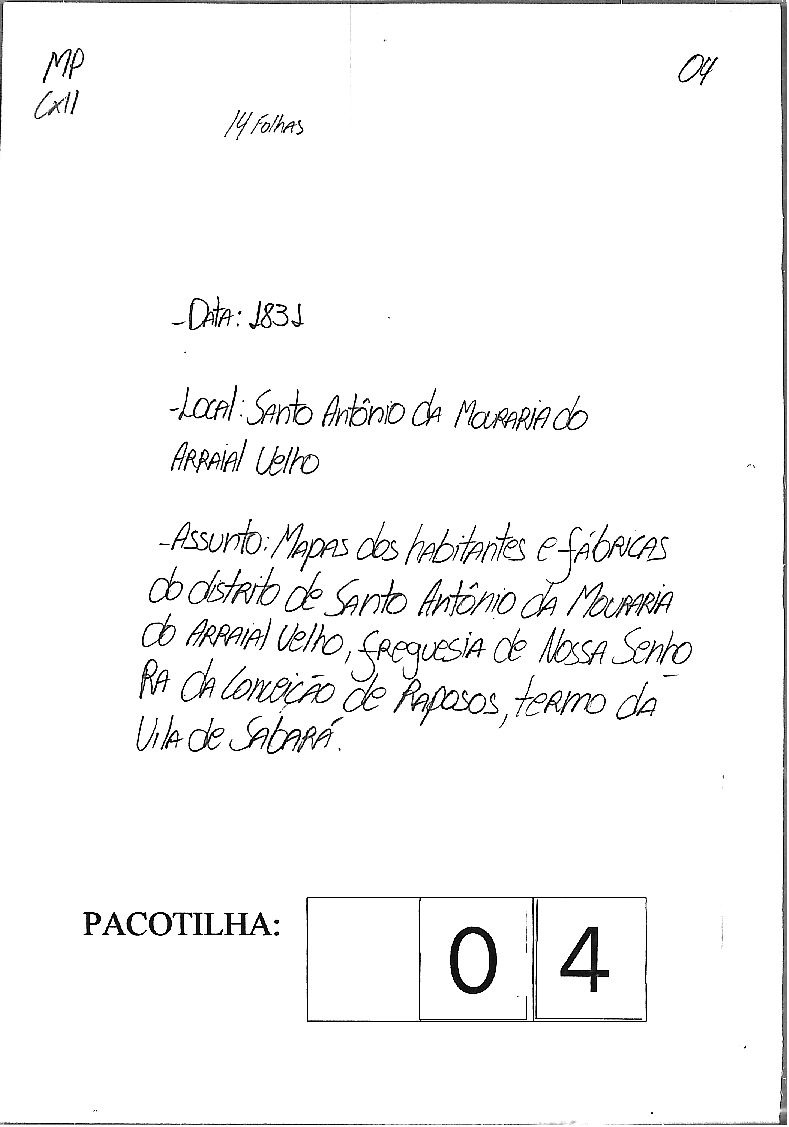 MP
04
Cx11
14 Folhas
-Data: 1831
-Local: Santo Antônio da Mouraria do
Arraial Velho
-Assunto: Mapas dos habitantes e fábricas
do distrito de Santo Antônio da Mouraria
do Arraial Velho, freguesia de Nossa Senho
ra da Conceição de Raposos, termo da
Vila de Sabará.
PACOTILHA: 04